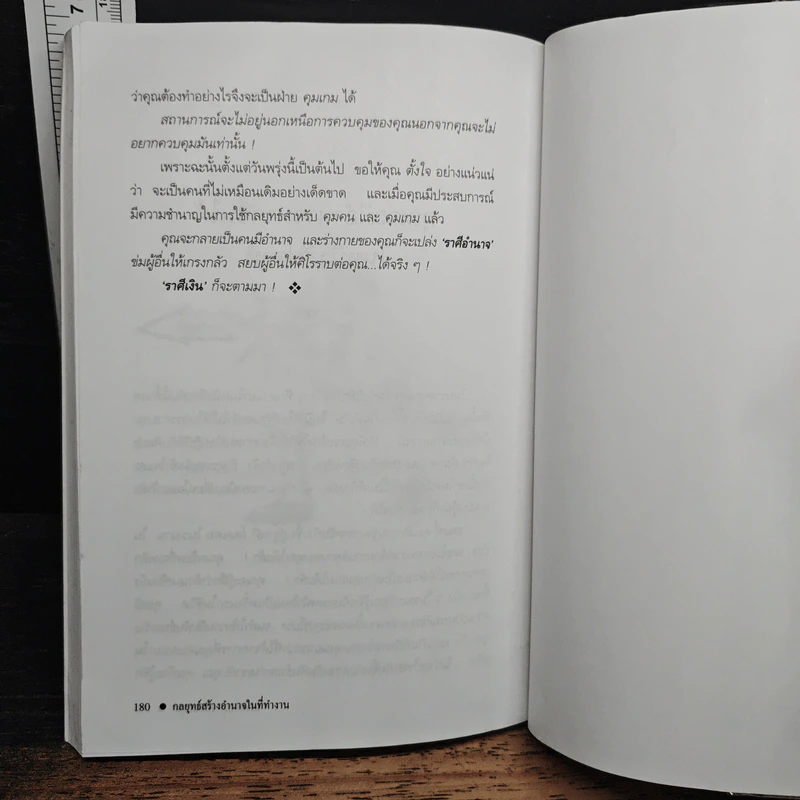 7
ว่าคุณต้องทำอย่างไรจึงจะเป็นฝ่าย คุมเกม ได้
สถานการณ์จะไม่อยู่นอกเหนือการควบคุมของคุณนอกจากคุณจะไม่
อยากควบคุมมันเท่านั้น !
เพราะฉะนั้นตั้งแต่วันพรุ่งนี้เป็นต้นไป ขอให้คุณ ตั้งใจ อย่างแน่วแน่
ว่า จะเป็นคนที่ไม่เหมือนเดิมอย่างเด็ดขาด และเมื่อคุณมีประสบการณ์
มีความชำนาญในการใช้กลยุทธ์สำหรับ คุมคน และ คุมเกม แล้ว
คุณจะกลายเป็นคนมีอำนาจ และร่างกายของคุณก็จะเปล่ง ‘ราศีอำนาจ’
ข่มผู้อื่นให้เกรงกลัว สยบผู้อื่นให้ศิโรราบต่อคุณ...ได้จริง ๆ !
‘ราศีเงิน’ ก็จะตามมา ! ❖
180 ● กลยุทธ์สร้างอำนาจในที่ทำงาน